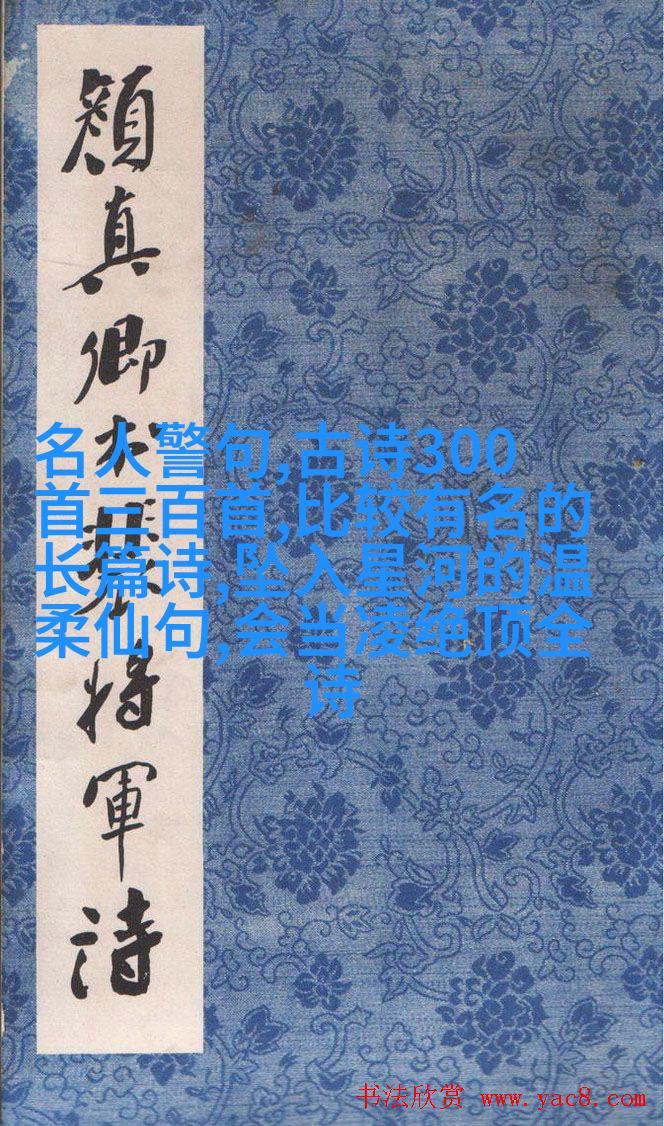 顔真卿将軍诗
名人警句,古诗300
首三百首,比较有名的
长篇诗,坠入星河的温
柔仙句,会当凌绝顶全
诗
书法欣赏 www.yac8.com